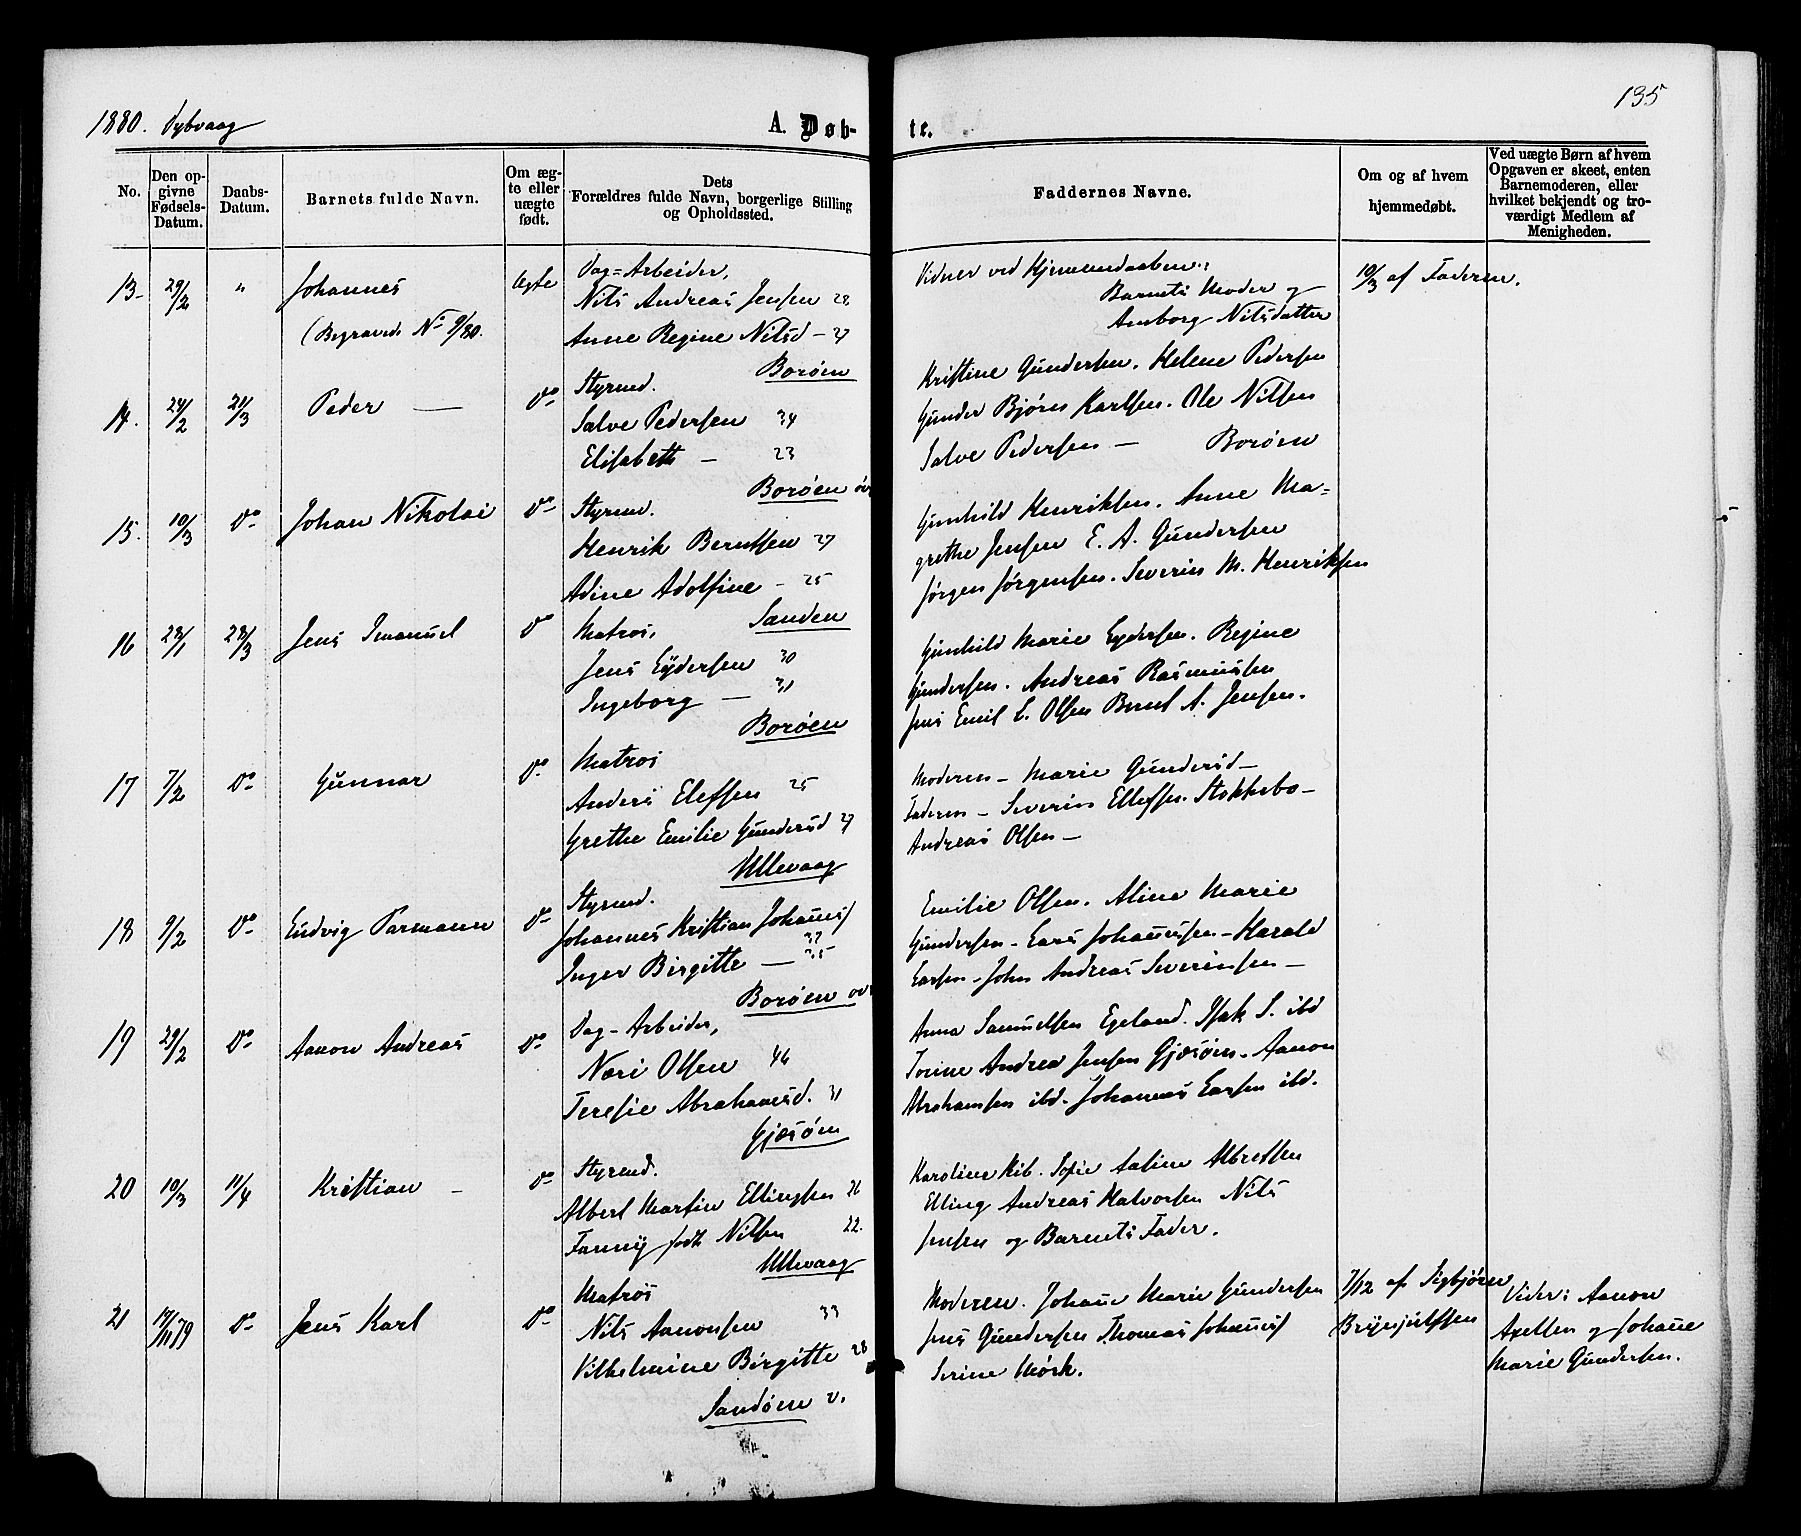 135
1880. Dybvaag
A. Døb-
te.
No.
Den op-
givne
Fødsels-
Datum.
Daabs-
Datum.
Barnets fulde Navn.
Om æg-
te eller
uægte
født.
Dets
Forældres fulde Navn, borgerlige Stilling
og Opholdssted.
Faddernes Navne.
Om og af hvem
hjemmedøbt.
Ved uægte Børn af hvem
Opgaven er skeet, enten
Barnemoderen, eller
hvilket bekjendt og tro-
værdigt Medlem af
Menigheden.
13- 29/2 " Johannes Ægte Dag=Arbeider,
(Begraved No 9/80.
Nils Andreas Jensen 28
Anne Regine Nilsd - 27
Borøen
Vidner ved Hjemmedaaben:
Barnets Moder og
Amborg Nilsdatter
10/3 af Faderen.
14. 24/2 21/3 Peder — Do Styrmd.
Salve Pedersen 34
Elisabeth — 23
Borøen øv
Kristine Gundersen. Helene Pedersen
Gunder Bjørn Karlsen. Ole Nilsen
Salve Pedersen — Borøen
15. 10/3 Do Johan Nikolai Do Styrmd.
Henrik Berntsen 27
Adine Adolfine - 25
Sanden
Gunhild Henriksen. Anne Ma=
grethe Jensen E. A. Gundersen
Jørgen Jørgensen. Severin M. Henriksen
16 28/1 28/3 Jens Imanuel Do Matros,
Jens Eydersen 30
Ingeborg — 31
Borøen
Gunhild Marie Eydersen. Regine
Gundersen. Andreas Rasmussen
Jens Emil E. Olsen Bernt A. Jensen.
17 7/2 Do Gunnar Do Matros
Anders Elefsen 25
Grethe Emilie Gundersd 27
Ullevaag
Moderen — Marie Gundersd —
Faderen — Severin Ellefsen. Stokkebo —
Andreas Olsen —
18 9/2 Do Ludvig Parmann Do Styrmd.
Johannes Kristian Johanns 37
Inger Birgitte — 35
Borøen øv
Emilie Olsen. Aline Marie
Gundersen — Lars Johannssen — Harald
Larsen — John Andreas Severinsen —
19 29/2 Do Aanon Andreas Do Dag-Arbeider,
Næri Olsen 46
Teresie Abrahamsd. 31
Gjæsøen
Anna Samuelsen Egeland. Isak S. ibd
Torine Andrea Jensen Gjæsøen. Aanon
Abrahamsen ibd. Johannes Larsen ibd.
20 19/3 11/4 Kristian — Do Styrmd.
Albert Martin Ellingsen 26
Fanny født Nilsen 22.
Ullevaag
Karoline Kib. Sofie Aasine Albretsen
Elling Andreas Halvorsen Nils
Jensen og Barnets Fader.
21 17/11 79 Do Jens Karl Do Matros
Nils Aanonsen 33
Vilhelmine Birgitte 28
Sandøen v.
Moderen. Johanne Marie Gundersen
Jens Gundersen Thomas Johanns
Serine Mørk.
7/12 af Sigbjørn
Brynjulfsen
Vider: Aanon
Axelsen og Johanne
Marie Gundersen.